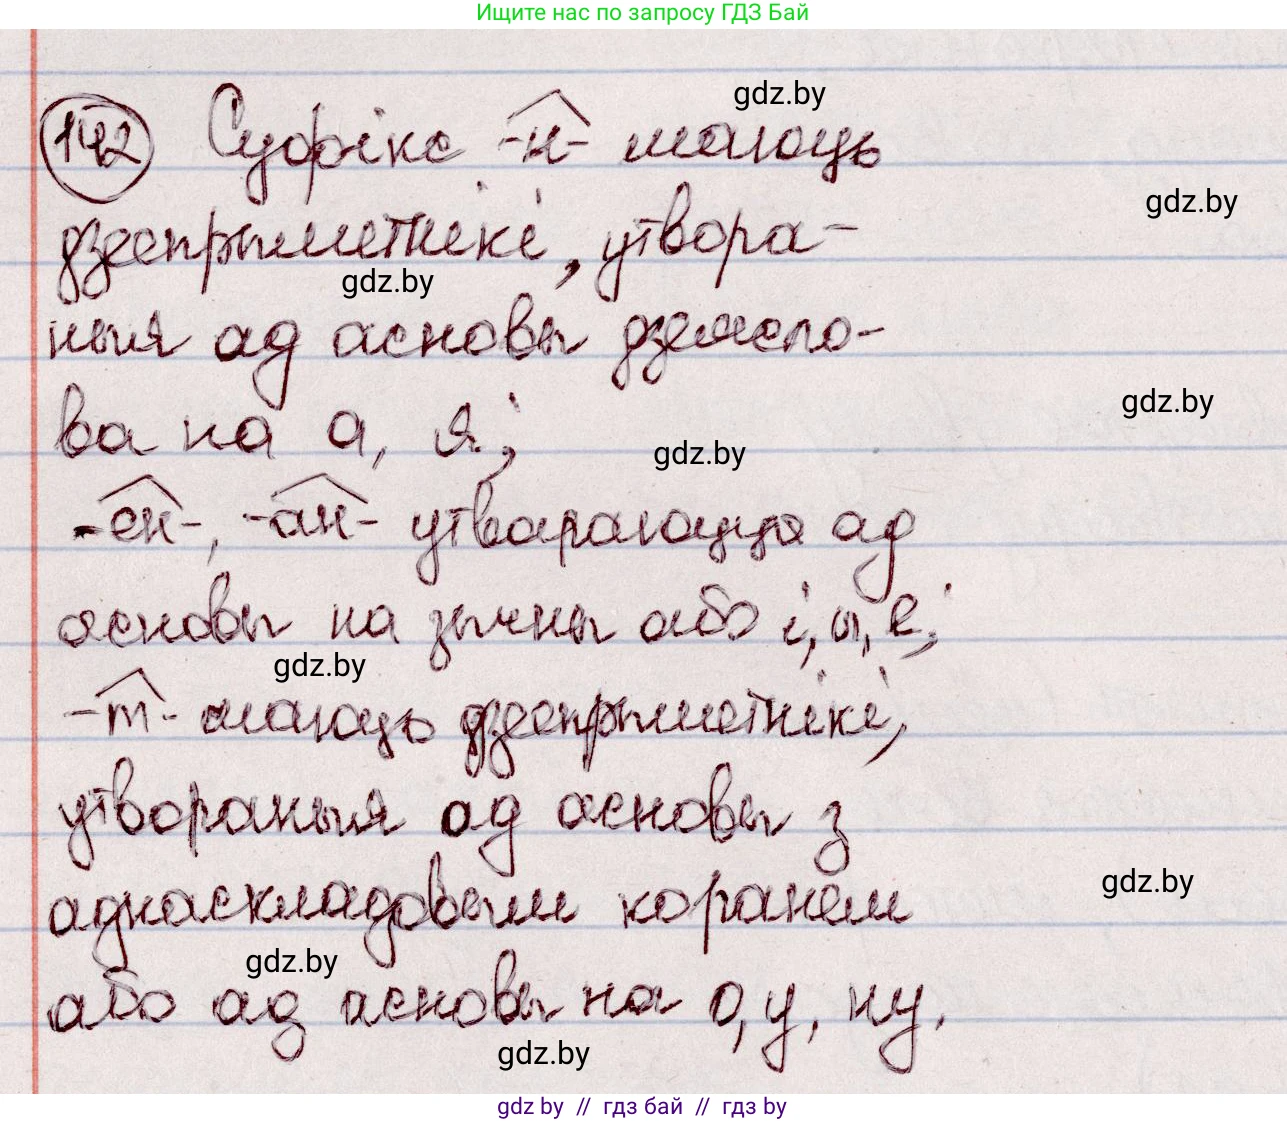 Ищите нас по запросу ГДЗ Бай
gdz.by
142 Суфікс -н- маюць
gdz.by
дзеепрыметнікі, утвора-
gdz.by
ныя ад асновы дзеясло-
gdz.by
ва на а, я;
gdz.by
-ен-, -ан- утвараюцца ад
асновы на зычны або і, ы, е;
gdz.by
-т- маюць дзеепрыметнікі,
утвораныя ад асновы з
gdz.by
аднаскладовым коранем
gdz.by
або ад асновы на о, у, ну.
gdz.by
gdz by // гдз бай // гдз by